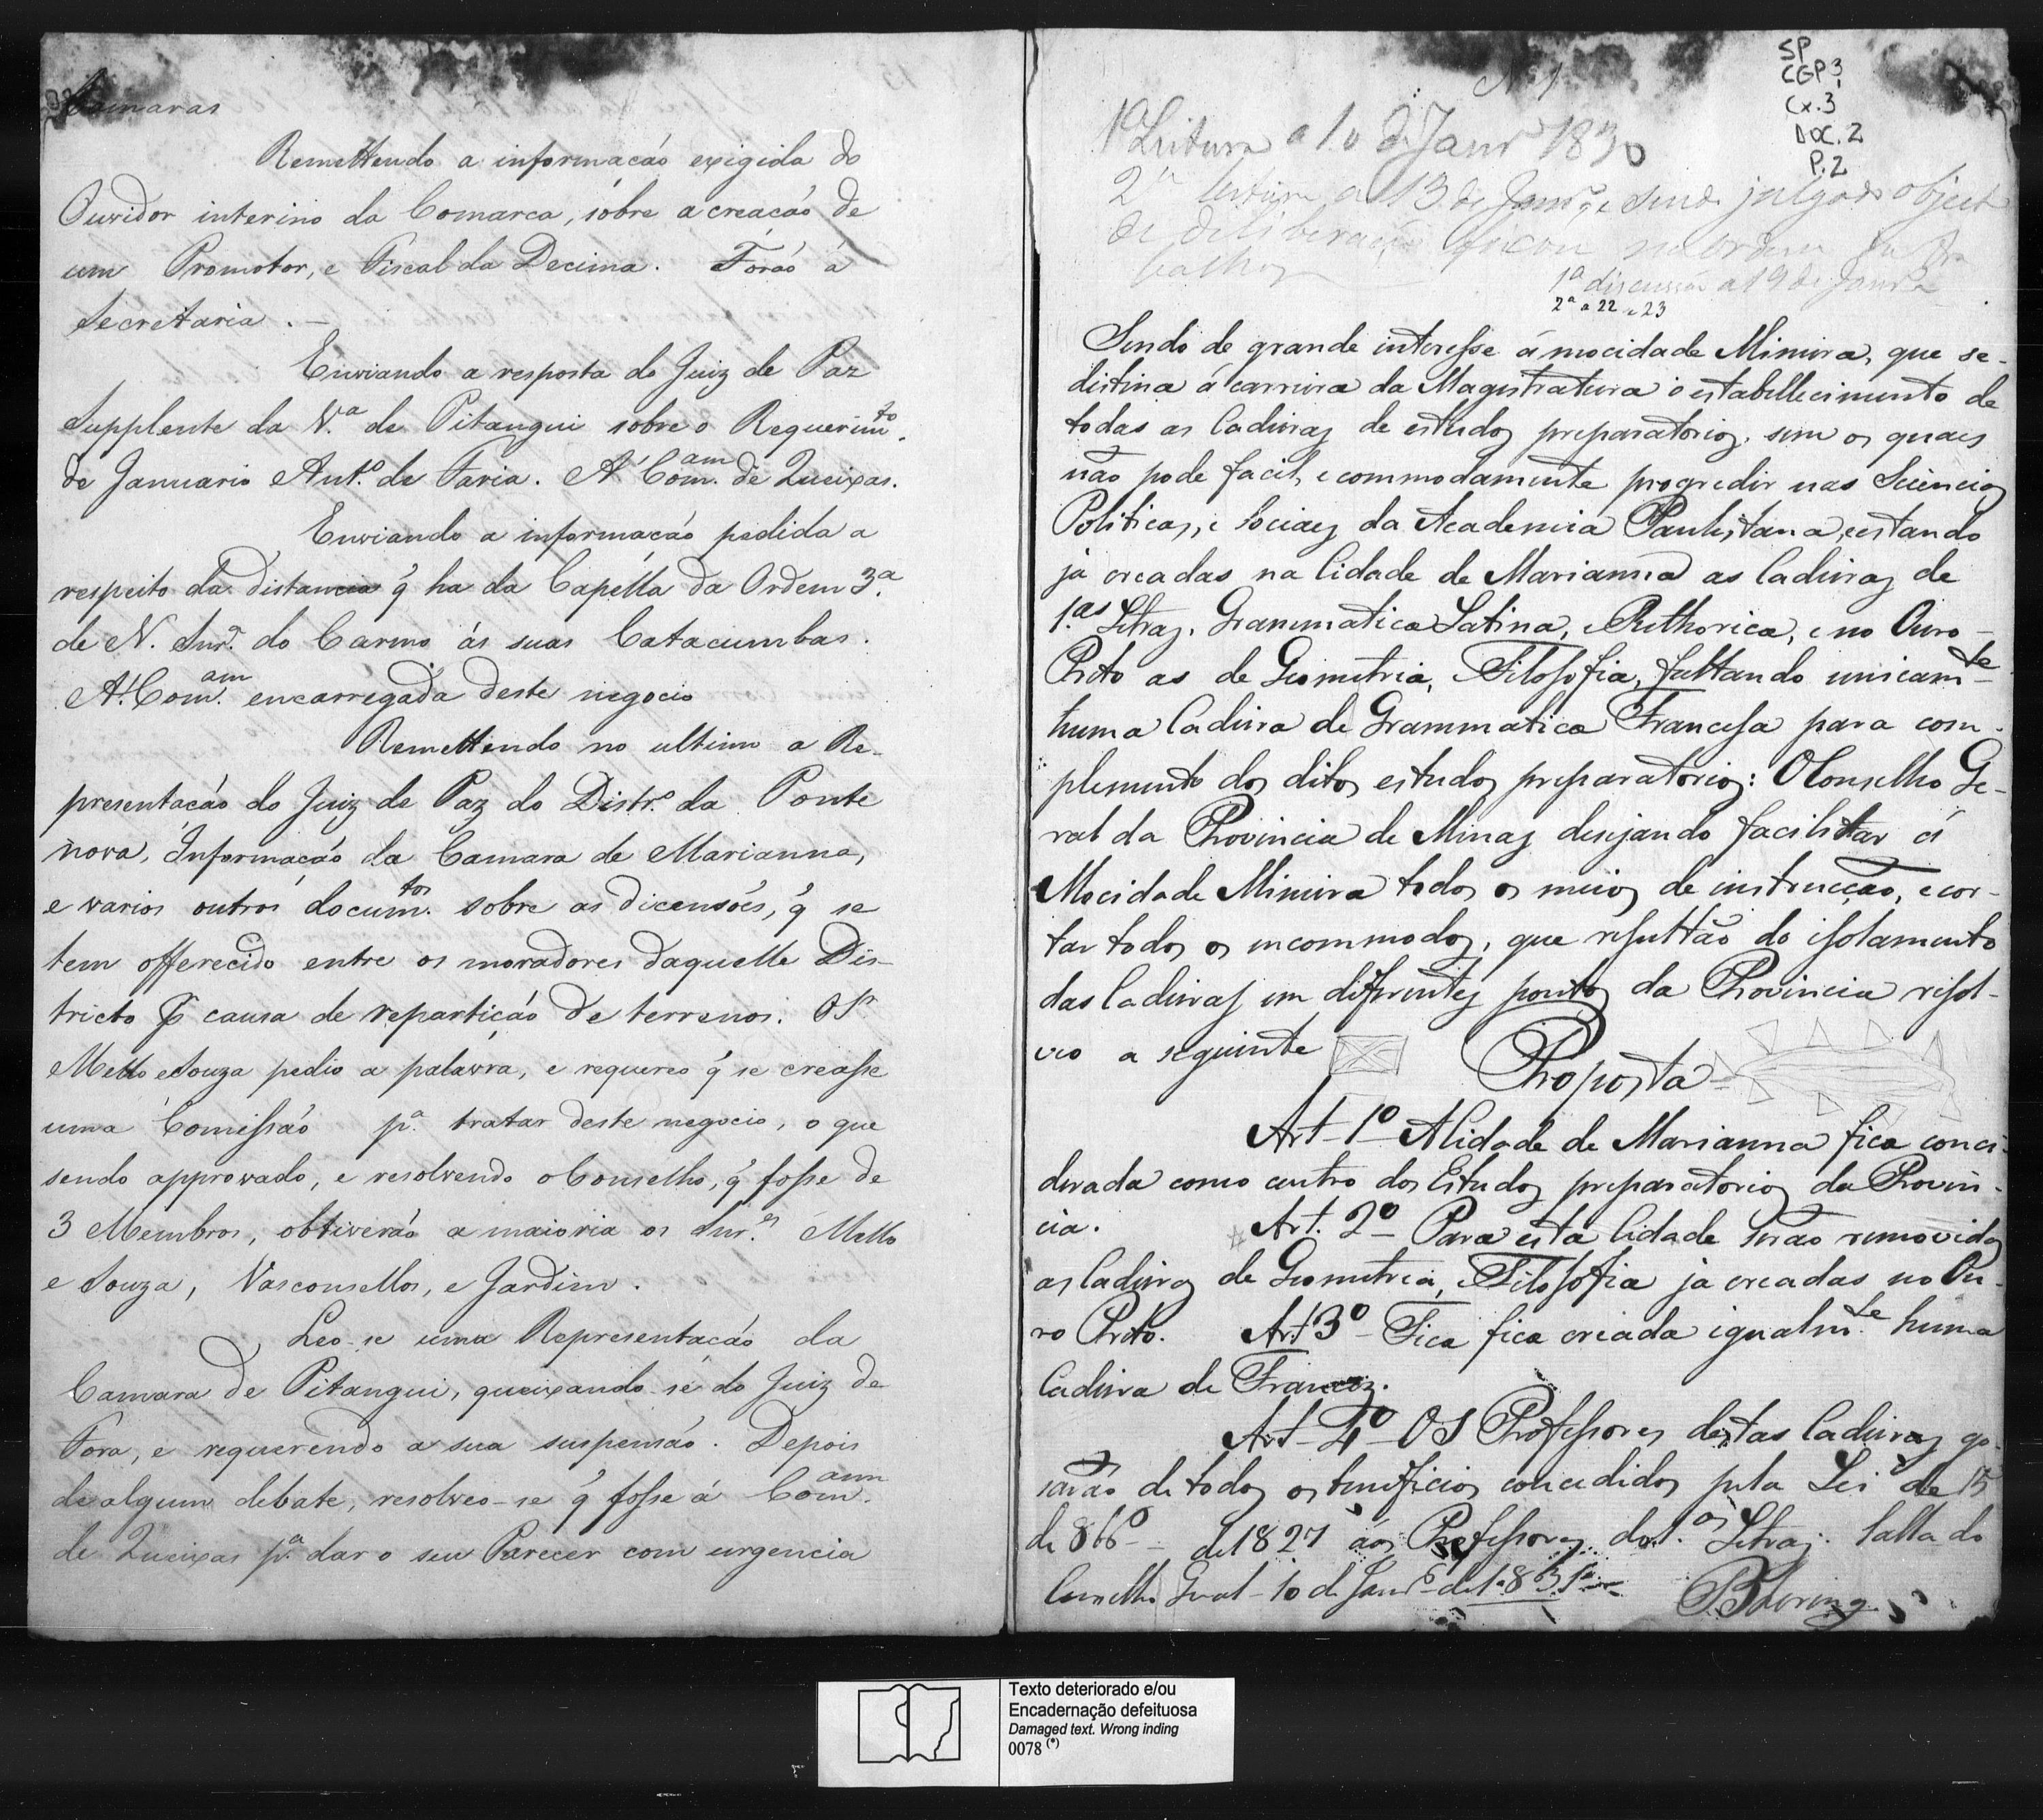 Camaras
Remettendo a informação exigida do
Ouvidor interino da Comarca, sobre a creação de
um Promotor, e Fiscal da Decima. Forão á
Secretaria. —
Enviando a resposta do Juiz de Paz
Supplente da V.ª de Pitangui sobre o Requerim.to
de Januario Ant.º de Faria. A' Com.am de Queixas.
Enviando a informação pedida a
respeito da distancia q̃ ha da Capella da Ordem 3.ª
de N. Snr.ª do Carmo ás suas Catacumbas.
A' Com.am encarregada deste negocio
Remettendo no ultimo a Re-
presentação do Juiz de Paz do Distr.º da Ponte
nova, Informação da Camara de Marianna,
e varios outros docum.tos sobre as dicensões, q̃ se
tem offerecido entre os moradores daquelle Dis-
tricto p̃ causa de repartição de terrenos. O Sr
Mello e Souza pedio a palavra, e requereo q̃ se creasse
uma Comissão p.ª tratar deste negocio, o que
sendo approvado, e resolvendo o Conselho, q̃ fosse de
3 Membros, obtiverão a maioria os Snr.es Mello
e Souza, Vasconsellos, e Jardim.
Leo-se uma Representação da
Camara de Pitangui, queixando-se do Juiz de
Fora, e requerendo a sua suspensão. Depois
de algum debate, resolveo-se q̃ fosse á Com.am
de Queixas p.ª dar o seu Parecer com urgencia
SP
CGP 3,
Cx. 3
DOC. 2
P. 2
Nº 1
1ª Leitura a 10 de Janrº 1830
2ª leitura a 13 de Janrº e sendo julgado object
de deliberação ficou na ordem dos tra
balhos
1ª discussão a 19 de Janrº
2ª a 22 e 23
Sendo de grande interesse á mocidade Mineira, que se-
destina á carreira da Magistratura o estabellecimento de
todas as Cadeiras de estudos preparatorios, sem os quaes
não pode facil, e commodamente progredir nas Sciencias
Politicas, e Sociaes da Academia Paulistana, e estando
já creadas na Cidade de Marianna as Cadeiras de
1.as Letras, Grammatica Latina, e Rethorica, e no Ouro-
Preto as de Geometria, e Filosofia, faltando unicamte
huma Cadeira de Grammatica Francesa para com-
plemento dos ditos estudos preparatorios: O Conselho Ge-
ral da Provincia de Minas desejando facilitar á
Mocidade Mineira todos os meios de instrucção, e cor-
tar todos os incommodos, que resultão do isolamento
das Cadeiras em diferentes pontos da Provincia resol-
veo a seguinte
Proposta-
Art- 1º- A Cidade de Marianna fica conci-
derada como centro dos Estudos preparatorios da Provin-
cia.
# Art. 2º- Para esta Cidade serão removidas
as Cadeiras de Geometria, e Filosofia já creadas no Ou-
ro Preto. Art. 3º- Fica fica creada igualm.te huma
Cadeira de Francez.
Art- 4º- OS Professores destas Cadeiras go-
sarão de todos os beneficios concedidos pela Lei de 15
de 8bro- de 1827 aos Professores de 1.as Letras. Salla do
Conselho Geral- 10 de Janrº de 1831
Bhering
Texto deteriorado e/ou
Encadernação defeituosa
Damaged text. Wrong inding
0078 (*)